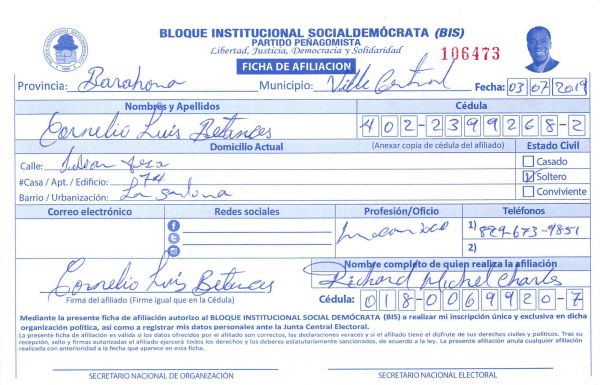 BLOQUE INSTITUCIONAL SOCIALDEMÓCRATA (BIS)
PARTIDO PEÑAGOMISTA
Libertad, Justicia, Democracia y Solidaridad
106473
FICHA DE AFILIACION
Provincia: Barahona Municipio: Villa Central Fecha: 03/07/2019
Nombres y Apellidos Cédula
Cornelio Luis Betances 402-2399268-2
Domicilio Actual (Anexar copia de cédula del afiliado) Estado Civil
Calle: Casado
#Casa / Apt. / Edificio: 74 Soltero
Barrio / Urbanización: La Conviviente
Correo electrónico Redes sociales Profesión/Oficio Teléfonos
1) 829-673-9851
2)
Nombre completo de quien realiza la afiliación
Cornelio Luis Betances Richard Michel Charles
Firma del afiliado (Firme igual que en la Cédula) Cédula: 018-0069920-7
Mediante la presente ficha de afiliación autorizo al BLOQUE INSTITUCIONAL SOCIAL DEMÓCRATA (BIS) a realizar mi inscripción única y exclusiva en dicha
organización política, así como a registrar mis datos personales ante la Junta Central Electoral.
La presente ficha de afiliación es válida si los datos ofrecidos por el afiliado son correctos, las declaraciones veraces y si el afiliado tiene el disfrute de sus derechos civiles y políticos. Tras su
recepción, sello y firmas autorizadas el afiliado ejercerá todos los derechos y los deberes estatutariamente sancionados, de acuerdo a la ley. La presente afiliación anula cualquier afiliación
realizada con anterioridad a la fecha que aparece en esta ficha.
SECRETARIO NACIONAL DE ORGANIZACIÓN SECRETARIO NACIONAL ELECTORAL